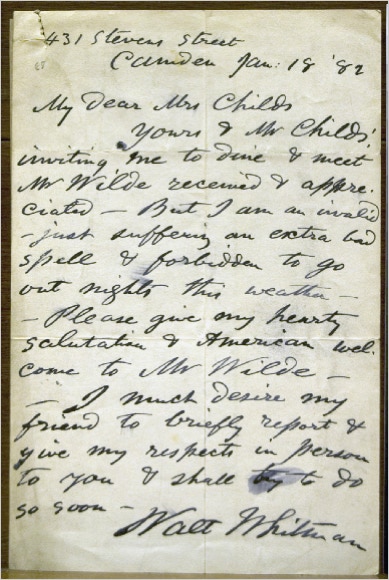 431 Stevens Street
Camden Jan: 18 '82
My Dear Mrs Childs
Yours & Mr Childs'
inviting me to dine & meet
Mr Wilde received & appre-
ciated – But I am an invalid
– just suffering an extra bad
spell & forbidden to go
out nights this weather –
– Please give my hearty
salutation & American wel-
come to Mr Wilde –
– I much desire my
friend to briefly report &
give my respects in person
to you & shall try to do
so soon –
Walt Whitman